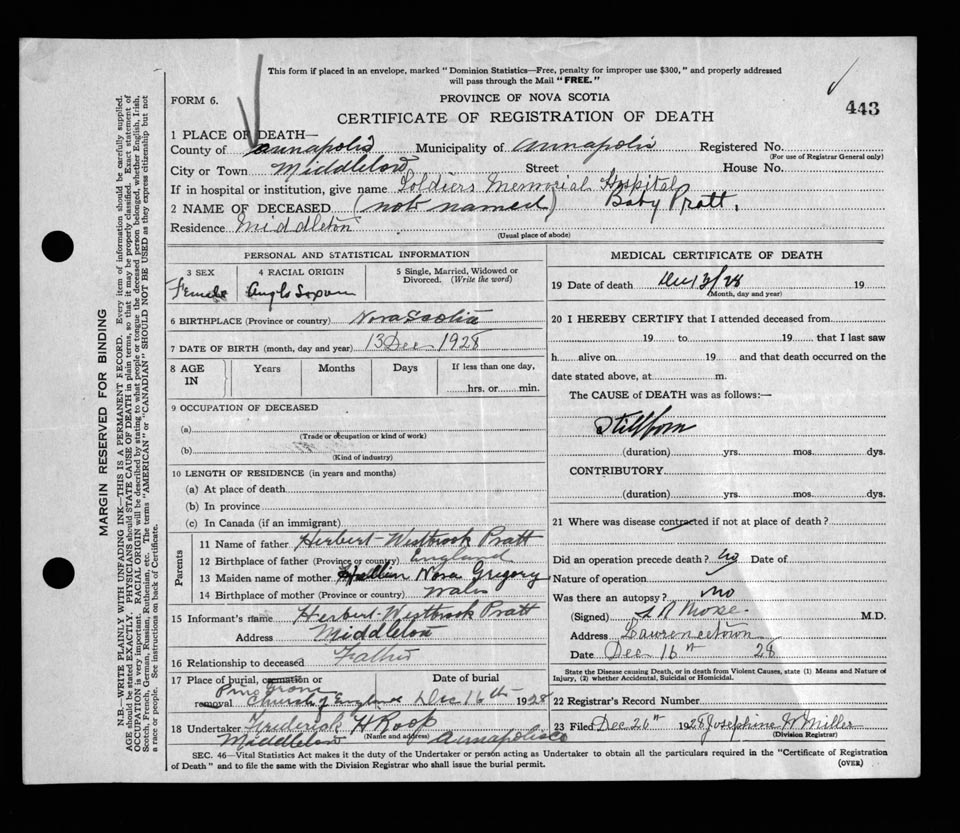 This form if placed in an envelope, marked "Dominion Statistics—Free, penalty for improper use $300," and properly addressed
will pass through the Mail "FREE."
FORM 6.
PROVINCE OF NOVA SCOTIA
443
CERTIFICATE OF REGISTRATION OF DEATH
1 PLACE OF DEATH—
County of Annapolis Municipality of Annapolis Registered No.
(For use of Registrar General only)
City or Town Middleton Street House No.
If in hospital or institution, give name Soldiers Memorial Hospital
2 NAME OF DECEASED (not named) Baby Pratt.
Residence Middleton
(Usual place of abode)
PERSONAL AND STATISTICAL INFORMATION
3 SEX
Female
4 RACIAL ORIGIN
Anglo Saxon
5 Single, Married, Widowed or Divorced. (Write the word)
6 BIRTHPLACE (Province or country) Nova Scotia
7 DATE OF BIRTH (month, day and year) 13 Dec 1928
8 AGE IN Years Months Days If less than one day,
hrs. or min.
9 OCCUPATION OF DECEASED
(a)
(Trade or occupation or kind of work)
(b)
(Kind of industry)
10 LENGTH OF RESIDENCE (in years and months)
(a) At place of death
(b) In province
(c) In Canada (if an immigrant)
Parents
11 Name of father Herbert Westbrook Pratt
12 Birthplace of father (Province or country) England
13 Maiden name of mother Nora Gregory
14 Birthplace of mother (Province or country) Wales
15 Informant's name Herbert Westbrook Pratt
Address Middleton
16 Relationship to deceased Father
17 Place of burial, cremation or Date of burial
Pine Grove
removal Church of England Dec 16th 1928
18 Undertaker Frederick H Roop
(Name and address)
Middleton Annapolis Co
MEDICAL CERTIFICATE OF DEATH
19 Date of death Dec 13/28 19
(Month, day and year)
20 I HEREBY CERTIFY that I attended deceased from
19 to 19 that I last saw
h alive on 19 and that death occurred on the
date stated above, at m.
The CAUSE of DEATH was as follows:—
Stillborn
(duration) yrs. mos. dys.
CONTRIBUTORY
(duration) yrs. mos. dys.
21 Where was disease contracted if not at place of death?
Did an operation precede death? No Date of
Nature of operation
Was there an autopsy? no
(Signed) Morse M.D.
Address Lawrencetown
Date Dec 16th 28
State the Disease causing Death, or in death from Violent Causes, state (1) Means and Nature of
Injury, (2) whether Accidental, Suicidal or Homicidal.
22 Registrar's Record Number
23 Filed Dec 20th 1928 Josephine W Miller
(Division Registrar)
SEC. 46—Vital Statistics Act makes it the duty of the Undertaker or person acting as Undertaker to obtain all the particulars required in the "Certificate of Registration
of Death" and to file the same with the Division Registrar who shall issue the burial permit.
(OVER)
MARGIN RESERVED FOR BINDING
N.B.—WRITE PLAINLY WITH UNFADING INK—THIS IS A PERMANENT RECORD. Every item of information should be carefully supplied.
AGE should be stated EXACTLY. PHYSICIANS should STATE CAUSE OF DEATH in plain terms, so that it may be properly classified. Exact statement of
OCCUPATION is very important. RACIAL ORIGIN will be described by stating to what people or tongue the deceased person belonged, whether English, Irish,
Scotch, French, German, Russian, Ruthenian, etc. The terms "AMERICAN" or "CANADIAN" SHOULD NOT BE USED as they express citizenship but not
a race or people. See instructions on back of Certificate.